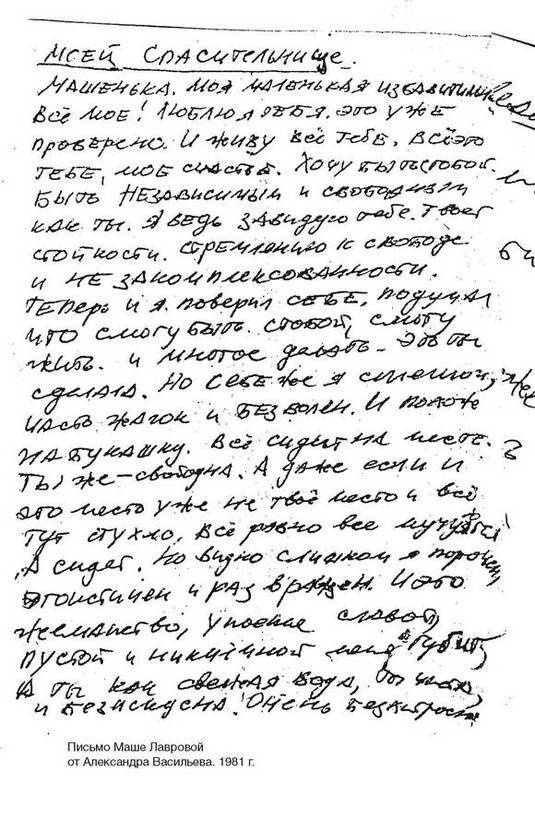 МОЕЙ СПАСИТЕЛЬНИЦЕ.
МАШЕНЬКА. МОЯ МАЛЕНЬКАЯ
ВСЁ МОЕ! ЛЮБЛЮ Я ТЕБЯ. ЭТО УЖЕ
ПРОВЕРЕНО. И ЖИВУ ВСЁ ТЕБЕ. ВСЁ ЭТО
ТЕБЕ, МОЕ СЧАСТЬЕ. ХОЧУ БЫТЬ С ТОБОЙ.
БЫТЬ НЕЗАВИСИМЫМ И СВОБОДНЫМ
КАК ТЫ. Я ВЕДЬ ЗАВИДУЮ ТЕБЕ. ТВОЕЙ
СТОЙКОСТИ. СТРЕМЛЕНИЮ К СВОБОДЕ
И НЕ ЗАКОМПЛЕКСОВАННОСТИ.
ТЕПЕРЬ И Я ПОВЕРИЛ СЕБЕ, ПОДУМАЛ
ЧТО СМОГУ БЫТЬ С ТОБОЙ, СМОГУ
ЖИТЬ. И МНОГОЕ ДЕЛАТЬ - ЭТО ТЫ
СДЕЛАЛА. НО СЕБЕ ЖЕ Я СМЕШОН,
ЧАСТЬ ЖАЛОК И БЕЗВОЛЕН. И ПОХОЖ
НА БУКАШКУ. ВСЁ СИДИТ НА МЕСТЕ.
ТЫ ЖЕ - СВОБОДНА. А ДАЖЕ ЕСЛИ И
ЭТО МЕСТО УЖЕ НЕ ТВОЁ МЕСТО И ВСЁ
ТУТ СТУХЛО, ВСЁ РОВНО ВСЕ
А СИДЕТ. НО ВИДНО СЛИШКОМ Я ПОРОЧЕН,
ЭГОИСТИЧЕН И РАЗВРАЩЕН. И ЭТО
ЖЕМАНСТВО, УПОЕНИЕ СЛАВОЙ,
ПУСТОЙ И НИКЧЁМНОЙ МЕНЯ ГУБИТ,
А ТЫ КАК СВЕЖАЯ ВОДА, ТЫ ЧИСТА,
И БЕЗИСКУСНА! ОЧЕНЬ
Письмо Маше Лавровой
от Александра Васильева. 1981 г.